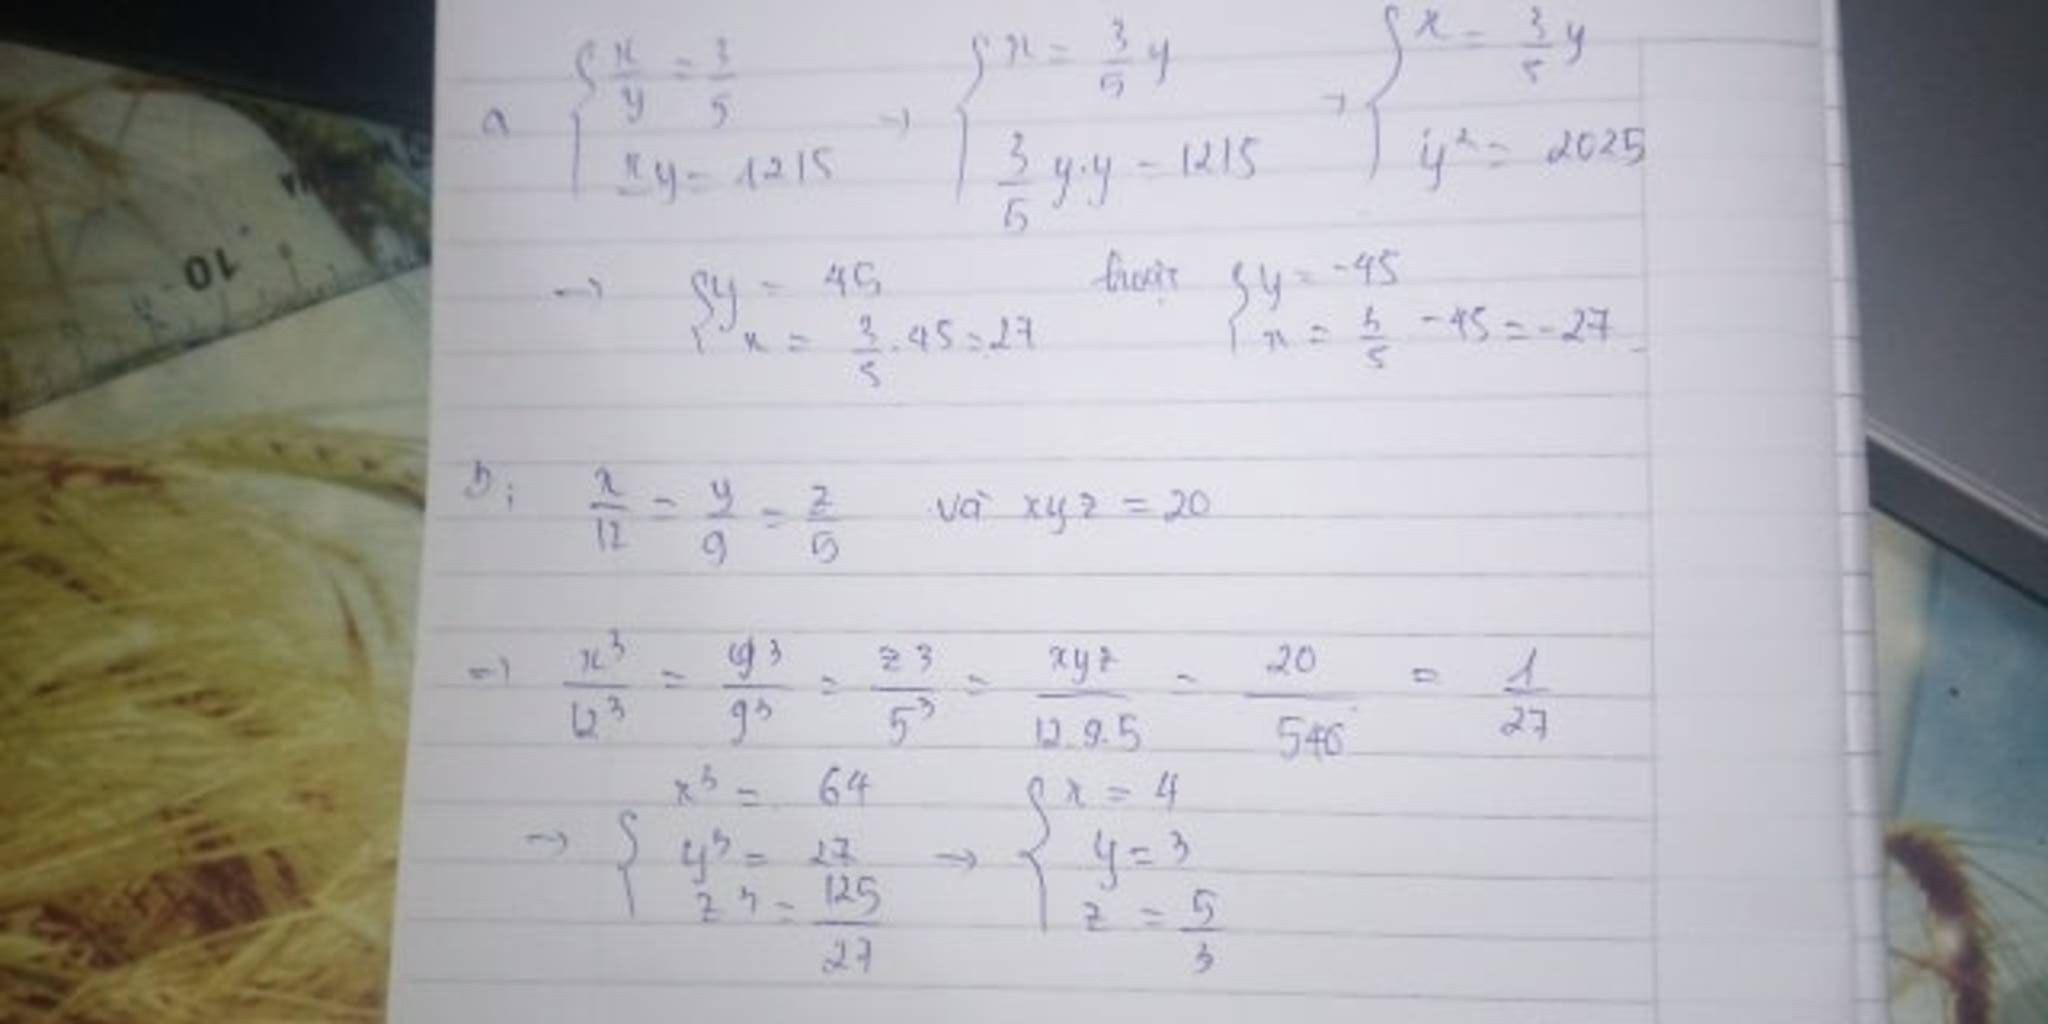 a { x/y = 3/5 xy = 1215 → { x = 3/5 y 3/5 y.y = 1215 → { x = 3/5 y y² = 2025
→ { y = 45 x = 3/5 . 45 = 27 hoặc { y = -45 x = 3/5 . -45 = -27
b; x/12 = y/9 = z/5 và xyz = 20
→ x³/12³ = y³/9³ = z³/5³ = xyz/12.9.5 = 20/540 = 1/27
→ { x³ = 64 y³ = 27 z³ = 125/27 → { x = 4 y = 3 z = 5/3
10